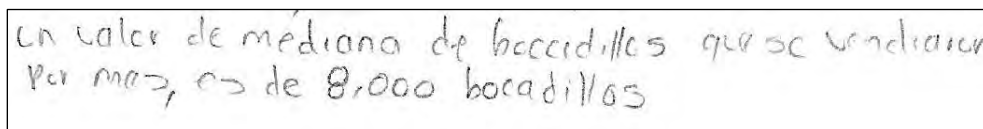 un valor de mediana de boccadillos que se vendieron
por mes, es de 8,000 bocadillos